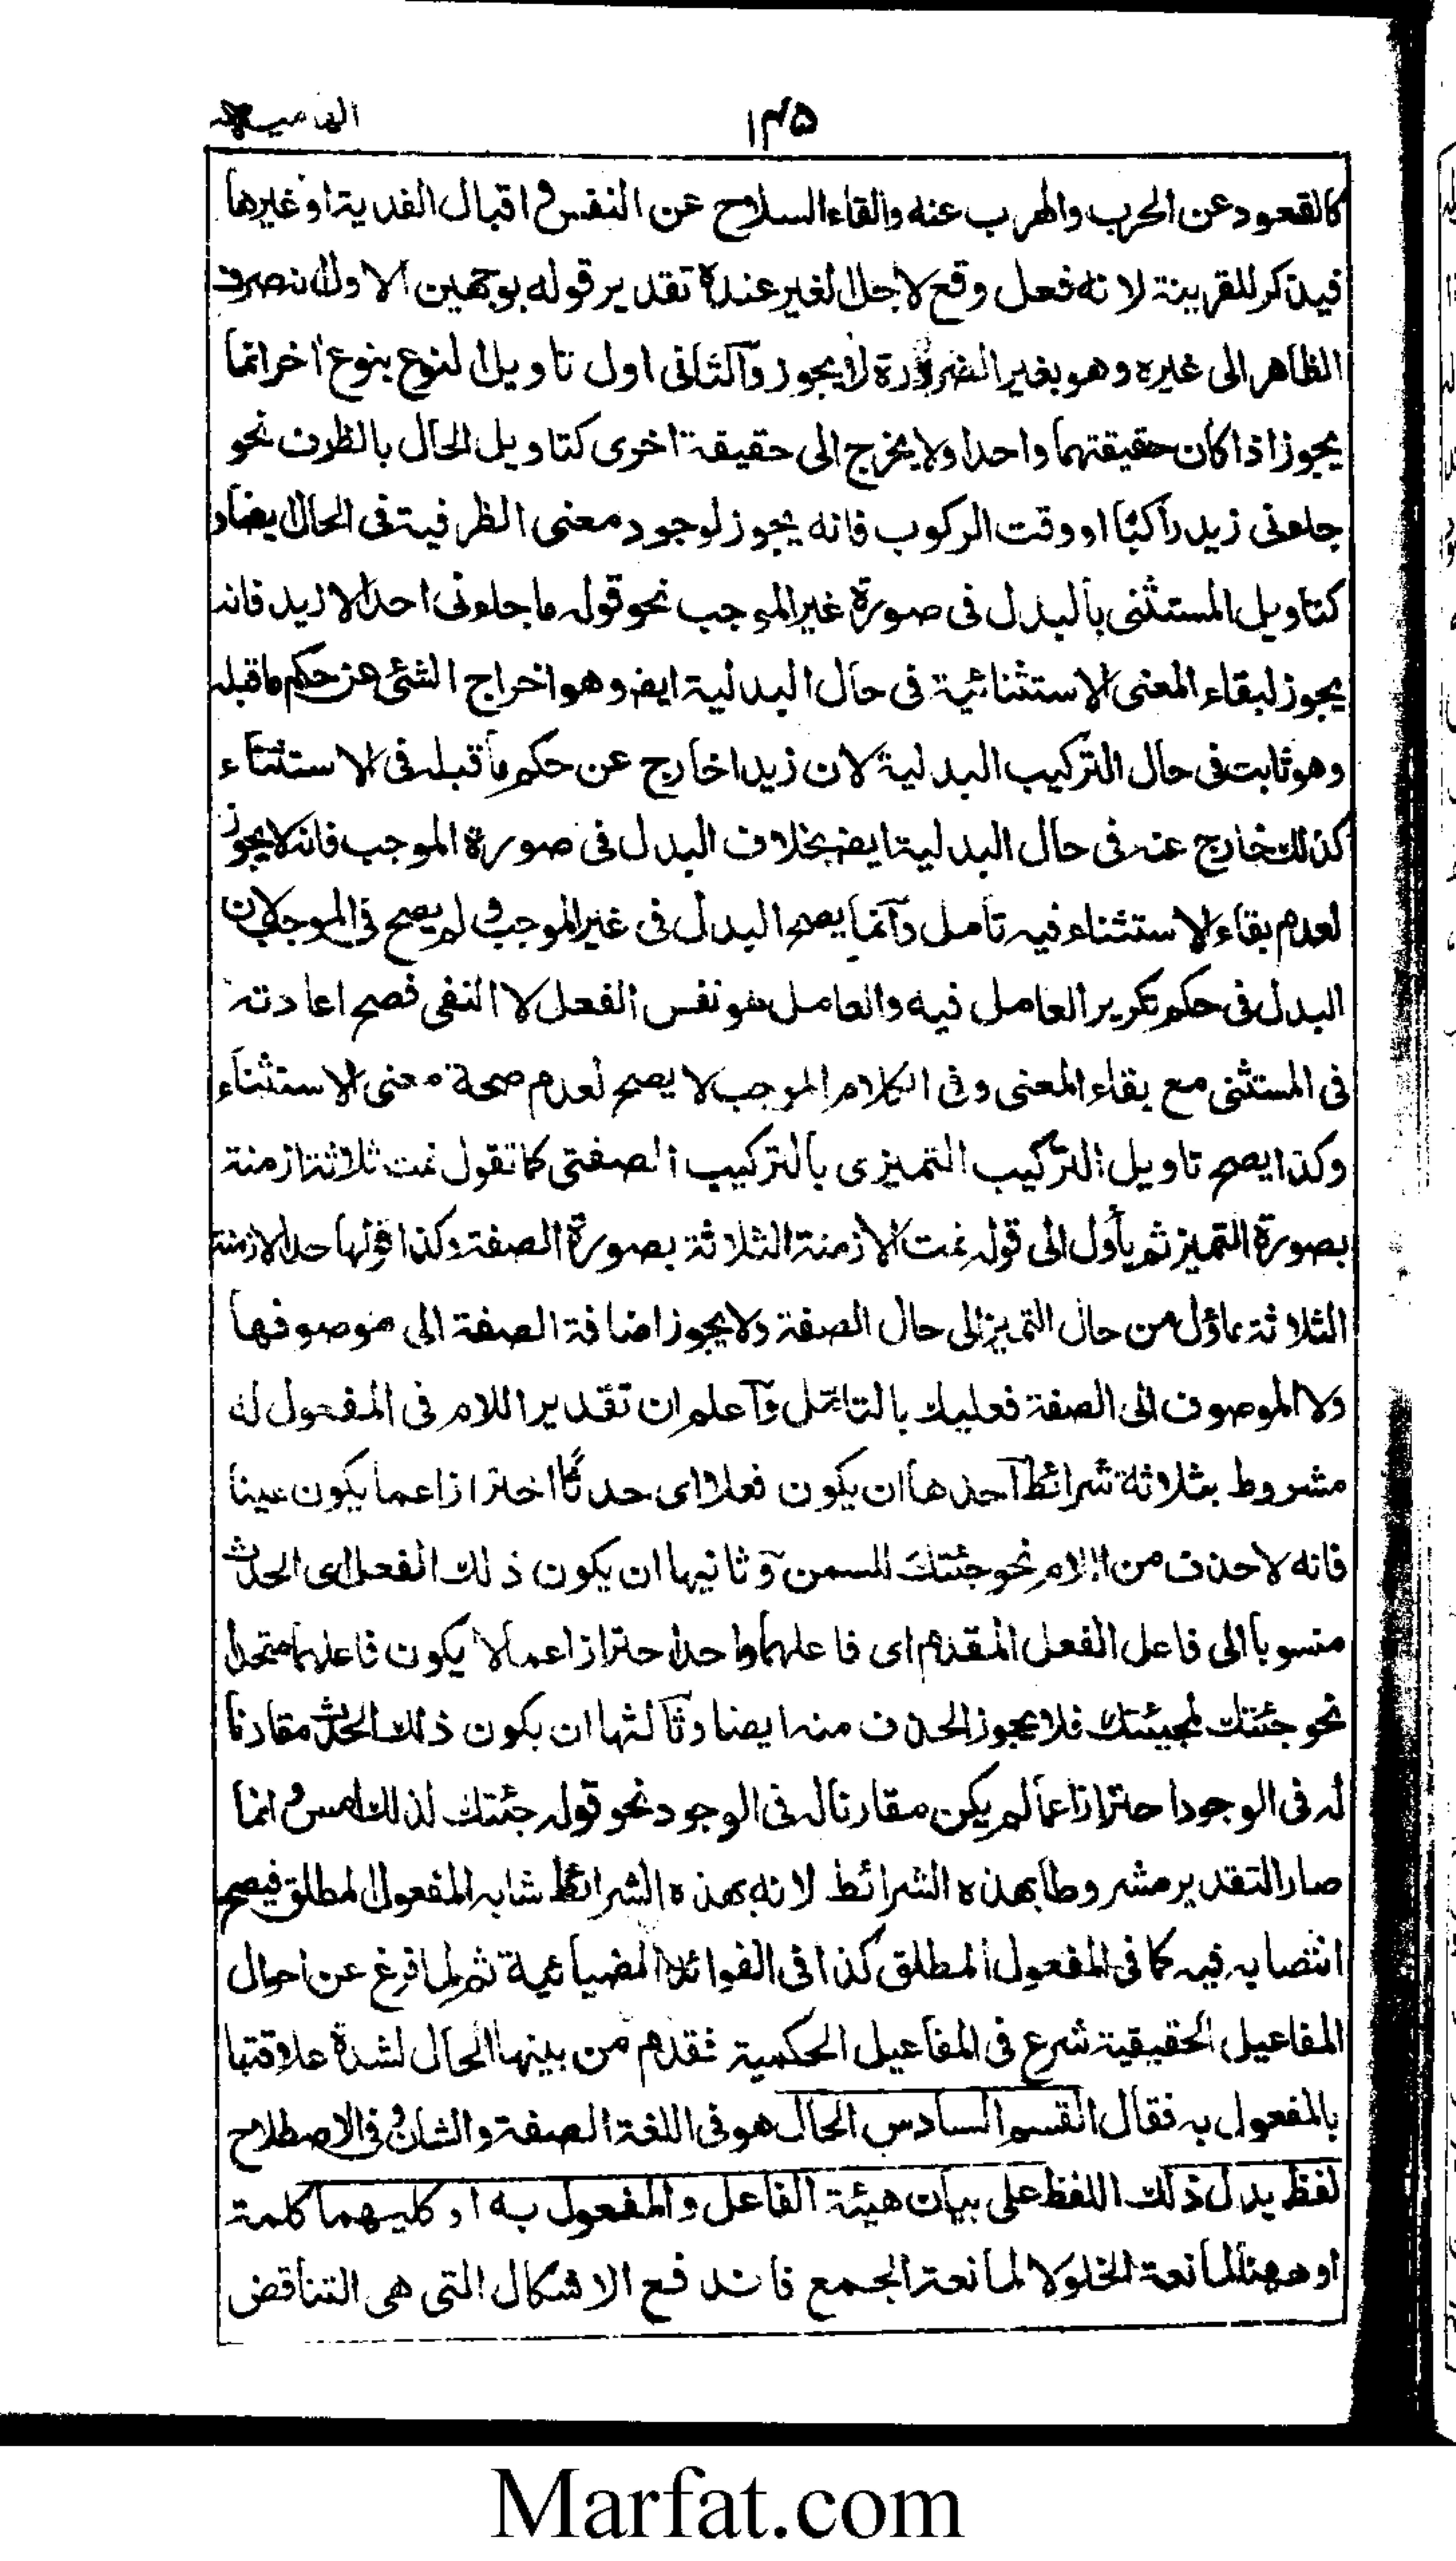 ۱۴۵
كالقعود عن الحرب والهرب عنه والقاء السلاح عن النفس و اقبال الفدية او غيرها
فيذكر للقرينة لانه فعل وقع لاجل الغير عنده تقدير قوله بوجهين الاول انه صرف
الظاهر الى غيره وهو بغير الضرورة لا يجوز والثانى اول تاويل النوع بنوع اخر انما
يجوز اذا كان حقيقتهما واحدا ولا يخرج الى حقيقة اخرى كتاويل الحال بالظرف نحو
جاءنى زيد راكبا او وقت الركوب فانه يجوز لوجود معنى الظرفية فى الحال ايضا و
كتاويل المستثنى بالبدل فى صورة غير الموجب نحو قوله ما جاءنى احد الا زيد فانه
يجوز لبقاء المعنى الاستثنائية فى حال البدلية ايضا وهو اخراج الشئ عن حكم ما قبله
وهو ثابت فى حال التركيب البدلية لان زيدا خارج عن حكم ما قبله فى الاستثناء
كذلك خارج عنه فى حال البدلية ايضا بخلاف البدل فى صورة الموجب فانه لا يجوز
لعدم بقاء الاستثناء فيه تامل وانما يصح البدل فى غير الموجب و لم يصح فى الموجب لان
البدل فى حكم تكرير العامل فيه والعامل هو نفس الفعل لا النفى فصح اعادته
فى المستثنى مع بقاء المعنى وفى الكلام الموجب لا يصح لعدم صحة معنى الاستثناء
وكذا يصح تاويل التركيب التميزى بالتركيب الصفتى كما تقول نمت ثلاثة ازمنة
بصورة التميز ثم يأول الى قوله نمت الازمنة الثلاثة بصورة الصفة وكذا قولها حد الازمنة
الثلاثة ماؤل من حال التميز الى حال الصفة ولا يجوز اضافة الصفة الى موصوفها
ولا الموصوف الى الصفة فعليك بالتأمل واعلم ان تقدير اللام فى المفعول له
مشروط بثلاثة شرائط احدها ان يكون فعلا اى حدثا احترازا عما يكون عينا
فانه لا حذف من اللام نحو جئتك للسمن وثانيها ان يكون ذلك الفعل اى الحدث
منسوبا الى فاعل الفعل المقدم اى فاعلهما واحد احترازا عما لا يكون فاعلهما متحدا
نحو جئتك لمجيئتك فلا يجوز الحذف منه ايضا وثالثها ان يكون ذلك الحدث مقارنا
له فى الوجود احترازا عما لم يكن مقارنا له فى الوجود نحو قوله جئتك لذلك امس و انما
صار التقدير مشروطا بهذه الشرائط لانه بهذه الشرائط شابه المفعول المطلق فيصح
انتصابه فيه كما فى المفعول المطلق كذا فى الفوائد الضيائية ثم لما فرغ عن احوال
المفاعيل الحقيقية شرع فى المفاعيل الحكمية فقدم من بينها الحال لشدة علاقتها
بالمفعول به فقال القسم السادس الحال هو فى اللغة الصفة والشان و فى الاصطلاح
لفظ يدل ذلك اللفظ على بيان هيئة الفاعل والمفعول به او كليهما كلمة
او ههنا لمانعة الخلو لا لمانعة الجمع فاندفع الاشكال التى هى التناقض
Marfat.com